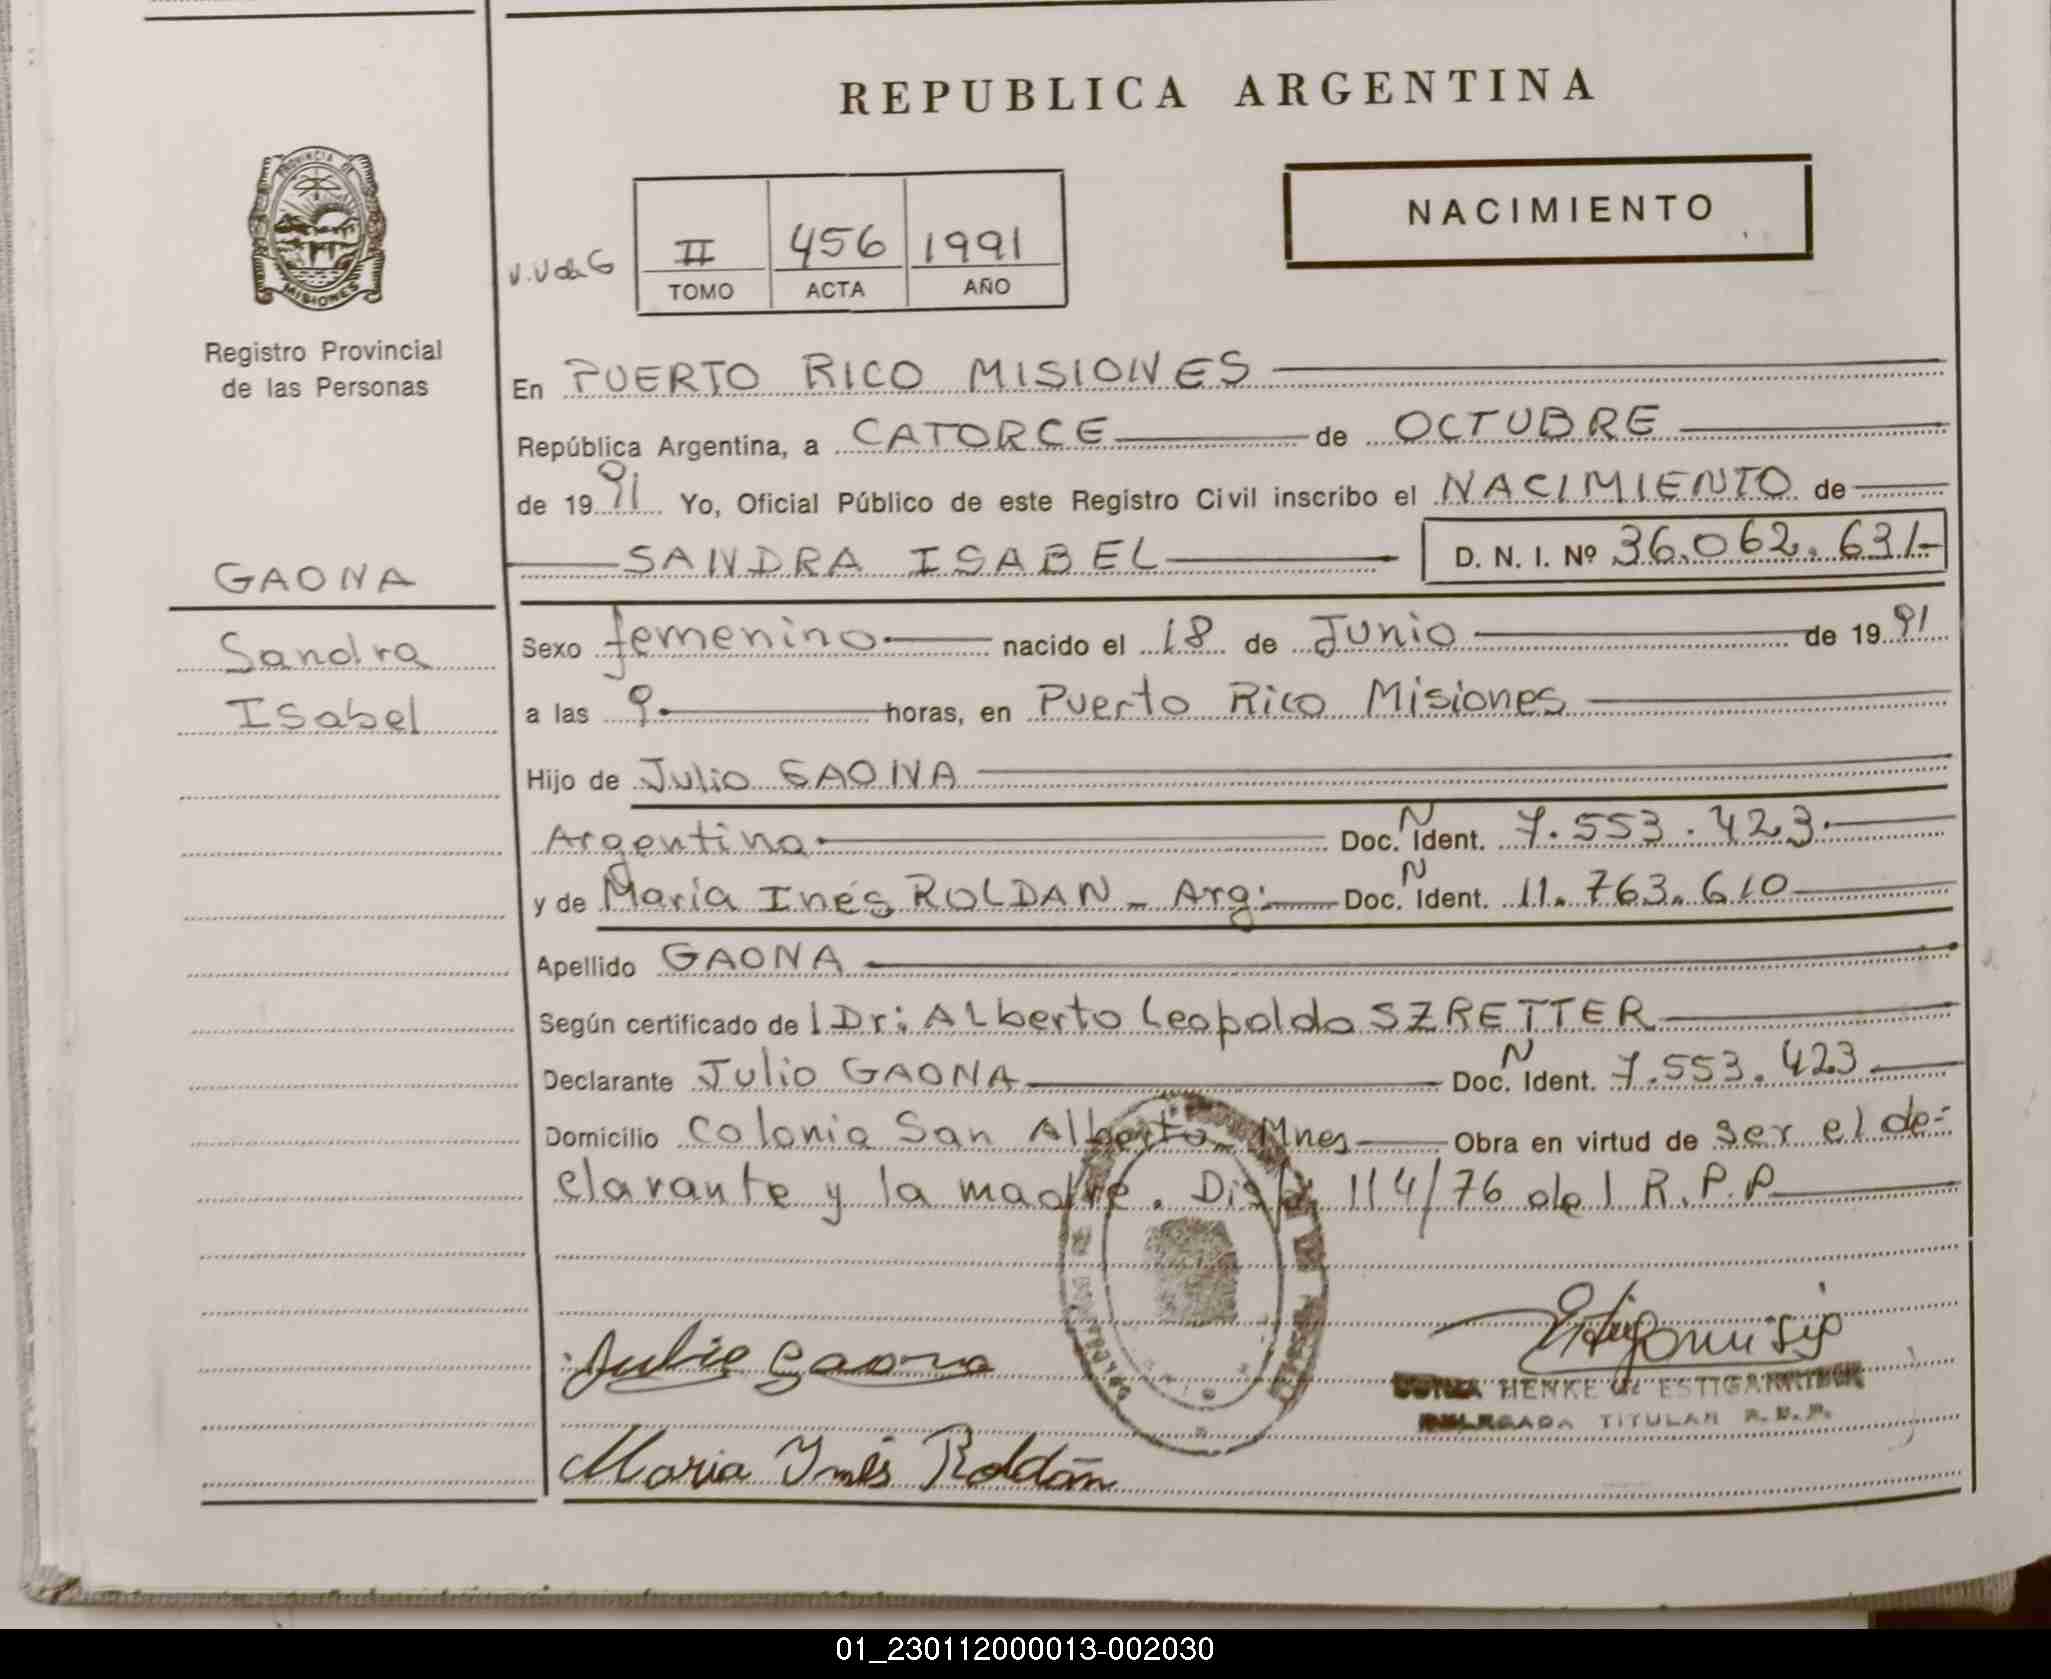 REPUBLICA ARGENTINA
PROVINCIA DE
MISIONES
Registro Provincial
de las Personas
NACIMIENTO
II 456 1991
TOMO ACTA AÑO
En PUERTO RICO MISIONES
República Argentina, a CATORCE de OCTUBRE
de 1991 Yo, Oficial Público de este Registro Civil inscribo el NACIMIENTO de
SANDRA ISABEL D. N. I. Nº 36.062.631-
GAONA
Sandra
Isabel
Sexo femenino nacido el 18 de Junio de 1991
a las 9. horas, en Puerto Rico Misiones
Hijo de Julio GAONA
Argentina Doc. N Ident. 7.553.423.
y de María Inés ROLDAN - Arg: Doc. N Ident. 11.763.610
Apellido GAONA
Según certificado del Dr: ALberto Leopoldo SZRETTER
Declarante Julio GAONA Doc. N Ident. 7.553.423
Domicilio Colonia San Alberto Mnes Obra en virtud de ser el de=
clarante y la madre. Disp. 114/76 del R.P.P
Julio Gaona
HENKE de ESTIGARRIBIA
DELEGADA TITULAR R.P.P.
Maria Inés Roldán
01_230112000013-002030